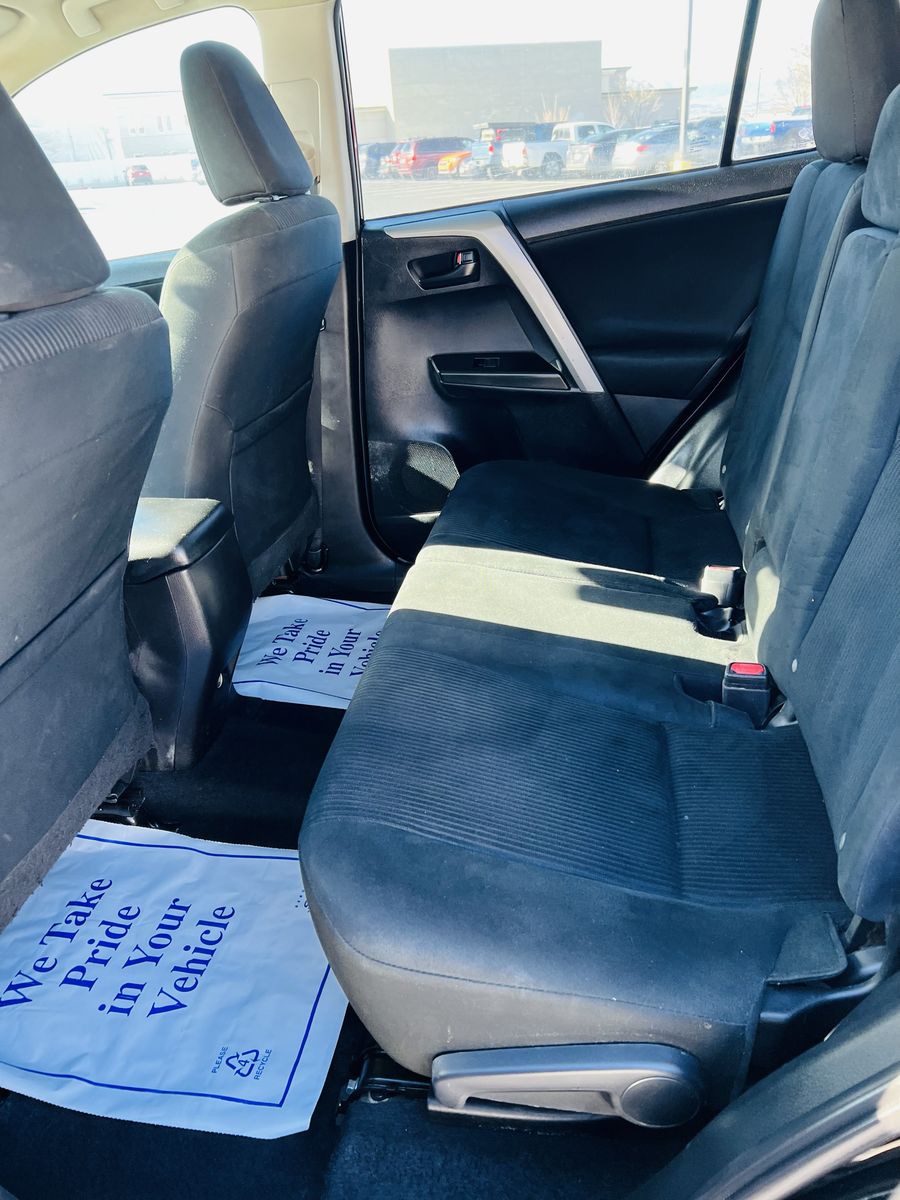 We Take
Pride
in Your
Vehicle
We Take
Pride
in Your
Vehicle
PLEASE
4
RECYCLE